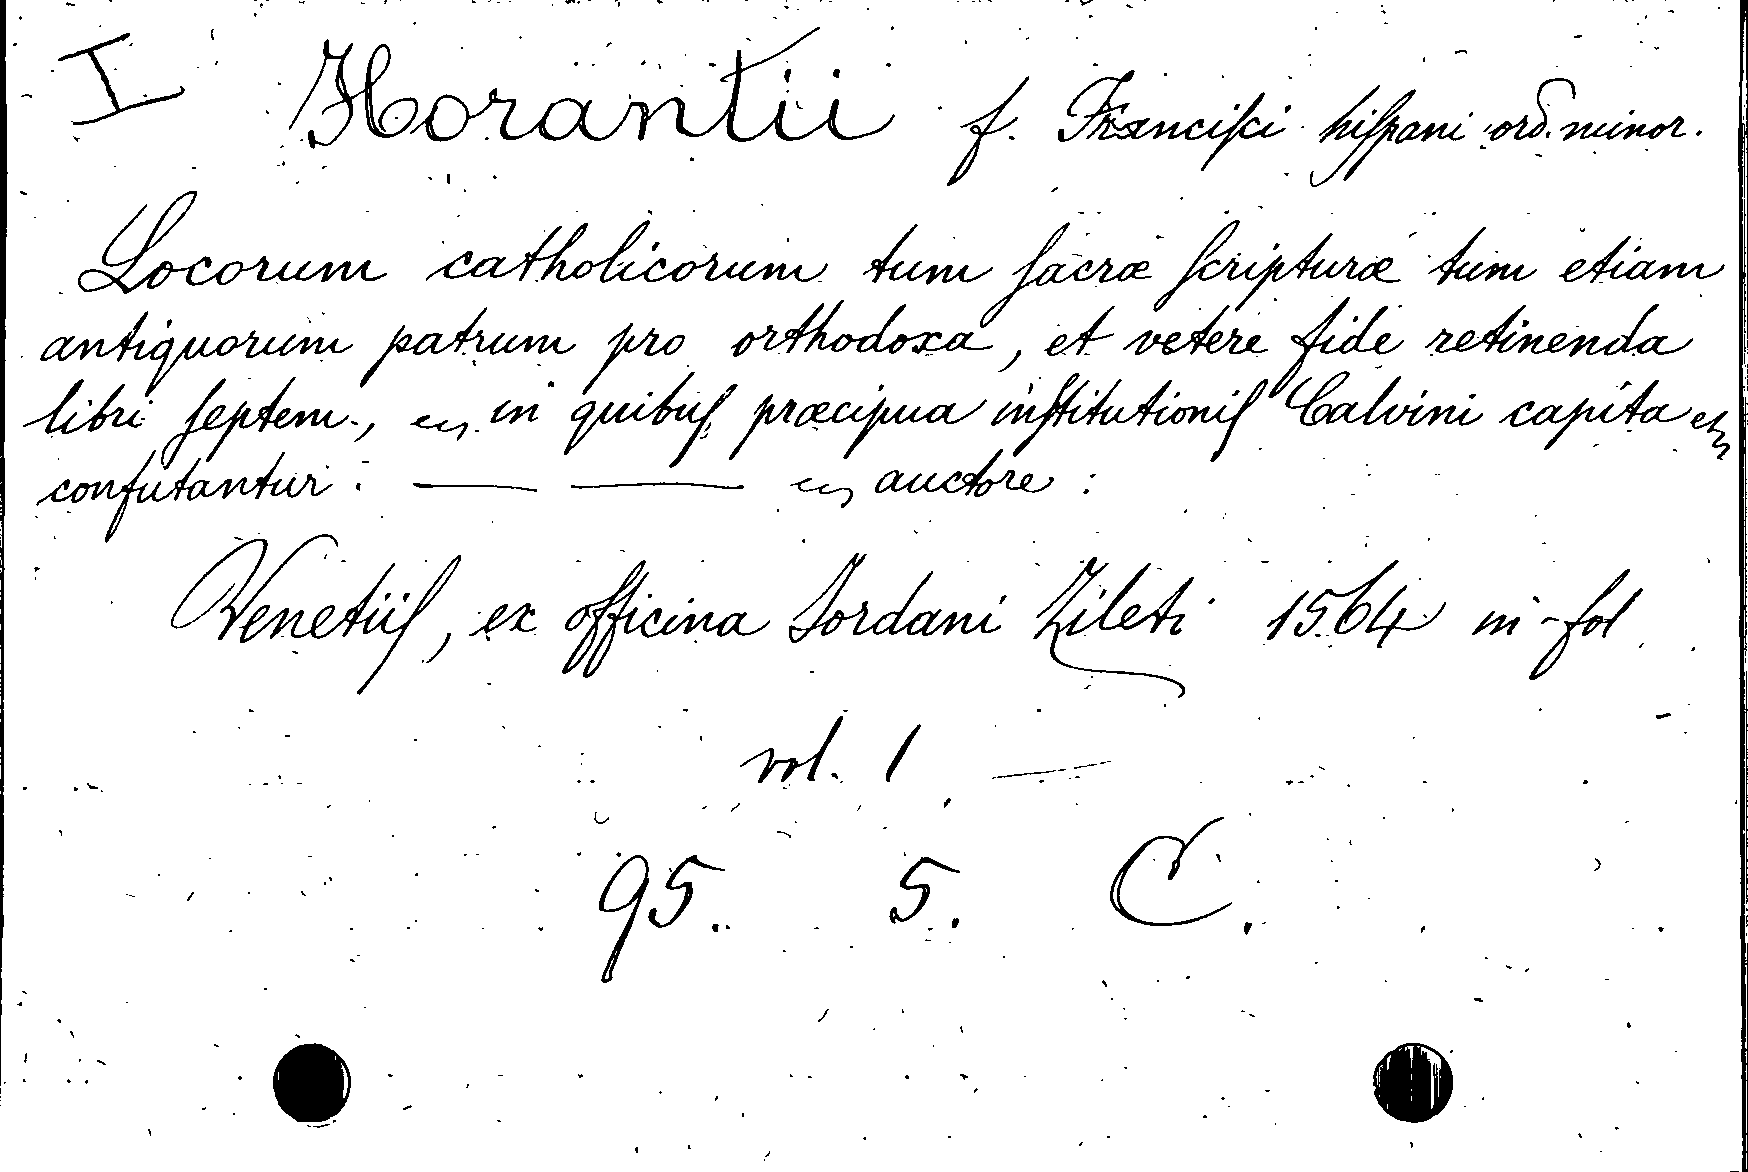 I Horantii f. Franciſci hiſpani ord. minor.
Locorum catholicorum tum ſacræ ſcripturæ tum etiam
antiquorum patrum pro orthodoxa, et vetere fide retinenda
libri ſeptem., in quibuſ, præcipua inſtitutioniſ Calvini capita
confutantur : — — auctore :
Venetiiſ, ex officina Jordani Zileti 1564 in-fol
vol. 1 —
95. 5. C.